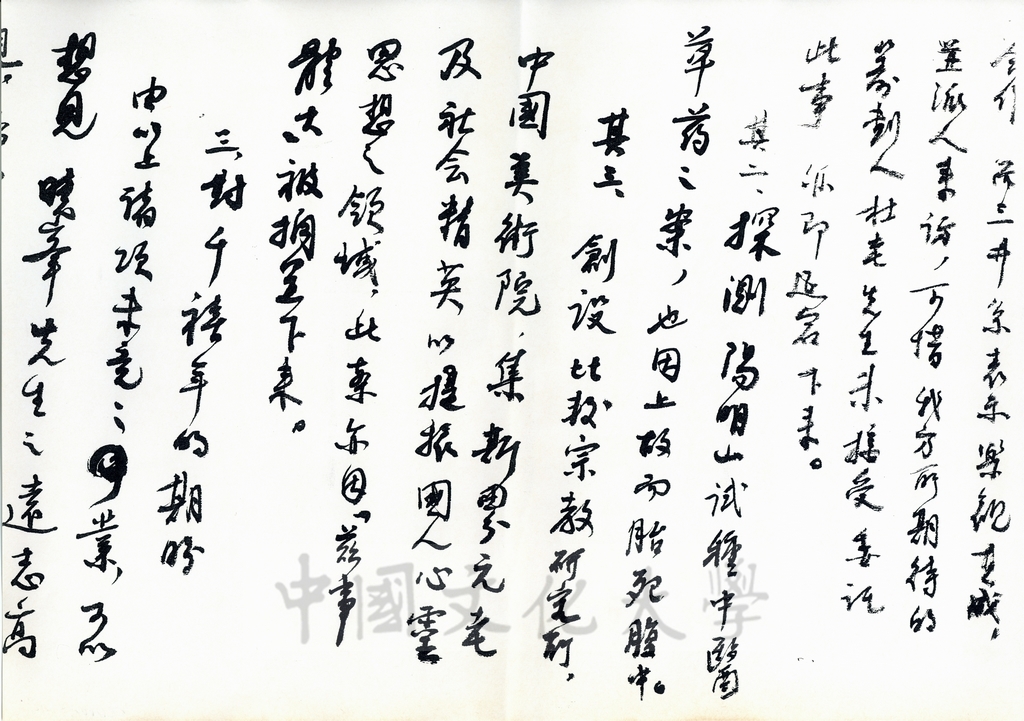 合作 後三井系表示樂觀其成，
並派人來訪，可惜我方所期待的
籌劃人杜老先生未接受委託
此事 亦即延宕下來。
其二、探測陽明山試種中醫
草药之案，也因上故而胎死腹中。
其三、創設比較宗教研究所，
中國美術院，集新界元老
及社会精英以提振國人心靈
思想之領域，此案亦因“茲事
體大”被擱置下来。
三、對千禧年的期盼
由以上諸項未竟之業，可以
想見 曉峯先生之遠志高
中國文化大學